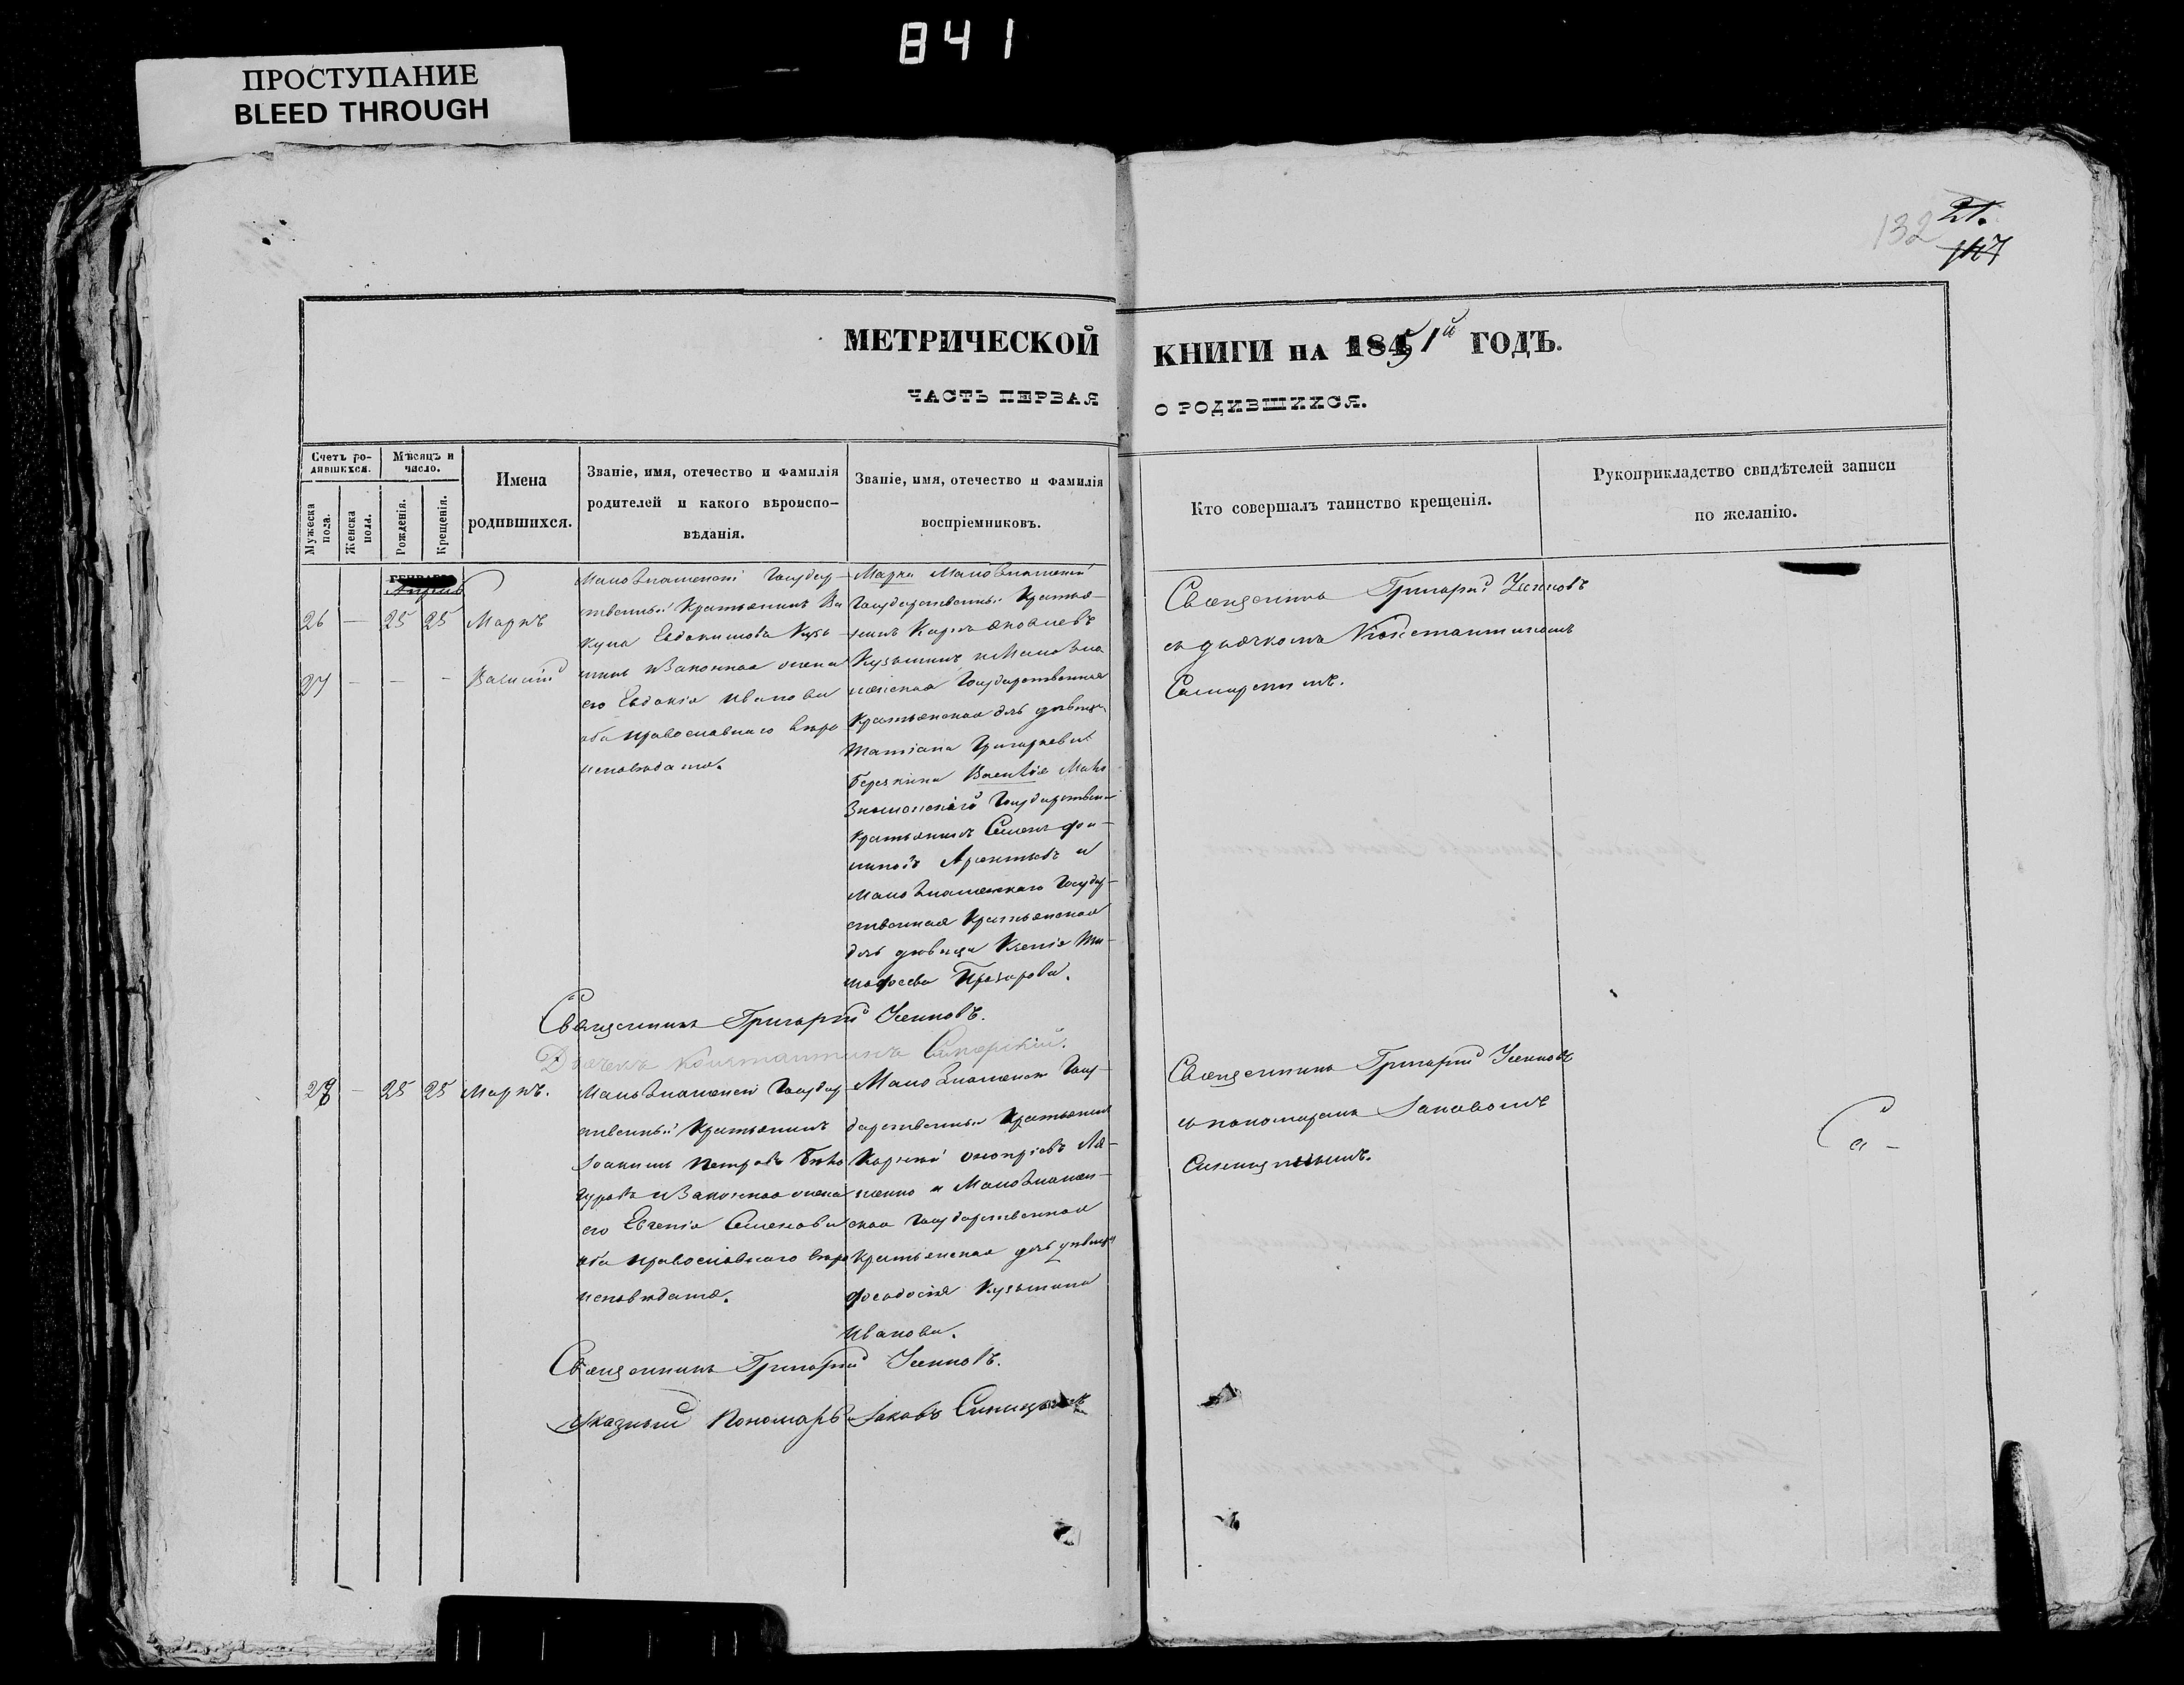 841
ПРОСТУПАНИЕ
BLEED THROUGH
132 21.
147
МЕТРИЧЕСКОЙ КНИГИ НА 1851й ГОДЪ.
ЧАСТЬ ПЕРВАЯ О РОДИВШИХСЯ.
Счетъ ро-
дившихся.
Мужеска пола.
Женска пола.
Мѣсяцъ и
число.
Рожденія.
Крещенія.
Имена
родившихся.
Званіе, имя, отечество и фамилія
родителей и какого вѣроиспо-
вѣданія.
Званіе, имя, отечество и фамилія
воспріемниковъ.
Кто совершалъ таинство крещенія.
Рукоприкладство свидѣтелей записи
по желанію.
Апрель
26 — 25 25 Маркъ
27 — — — Василій
Мало Знаменскій Государ-
ственный Крестьянинъ
Евдокимовъ Кузь-
минъ и Законная жена
его Евдокія Иванова
оба православнаго веро
исповеданія.
Марка Мало Знаменскій
Государственный Крестья-
нинъ Карпъ Яковлевъ
Кузьминъ и Мало Зна
менская Государственная
Крестьянская дочь девица
Татіана Григорьева
Березкина Василія Мало
Знаменскаго Государствен
Крестьянинъ Семенъ Фи-
липовъ и
Мало Знаменскаго Государ-
ственная Крестьянская
дочь девица Ксенія Ти-
мофеева
Священникъ Григорій
съ дьячкомъ Константиномъ
Священникъ Григорій
Дьячекъ Константинъ
28 — 25 25 Маркъ.
Мало Знаменскій Государ
ственный Крестьянинъ
Іоакимъ Петровъ Бело
гуровъ и Законная жена
его Евгенія Семенова
оба православнаго веро
исповеданія.
Мало Знаменск Госу-
дарственный Крестьянинъ
Мало Знамен-
ская Государственная
Крестьянская дочь девица
Феодосія Кузьмина
Иванова.
Священникъ Григорій
съ пономаремъ Іаковомъ
Синицынымъ.
Са-
Священникъ Григорій
Указный Пономарь Іаковъ Синицынъ